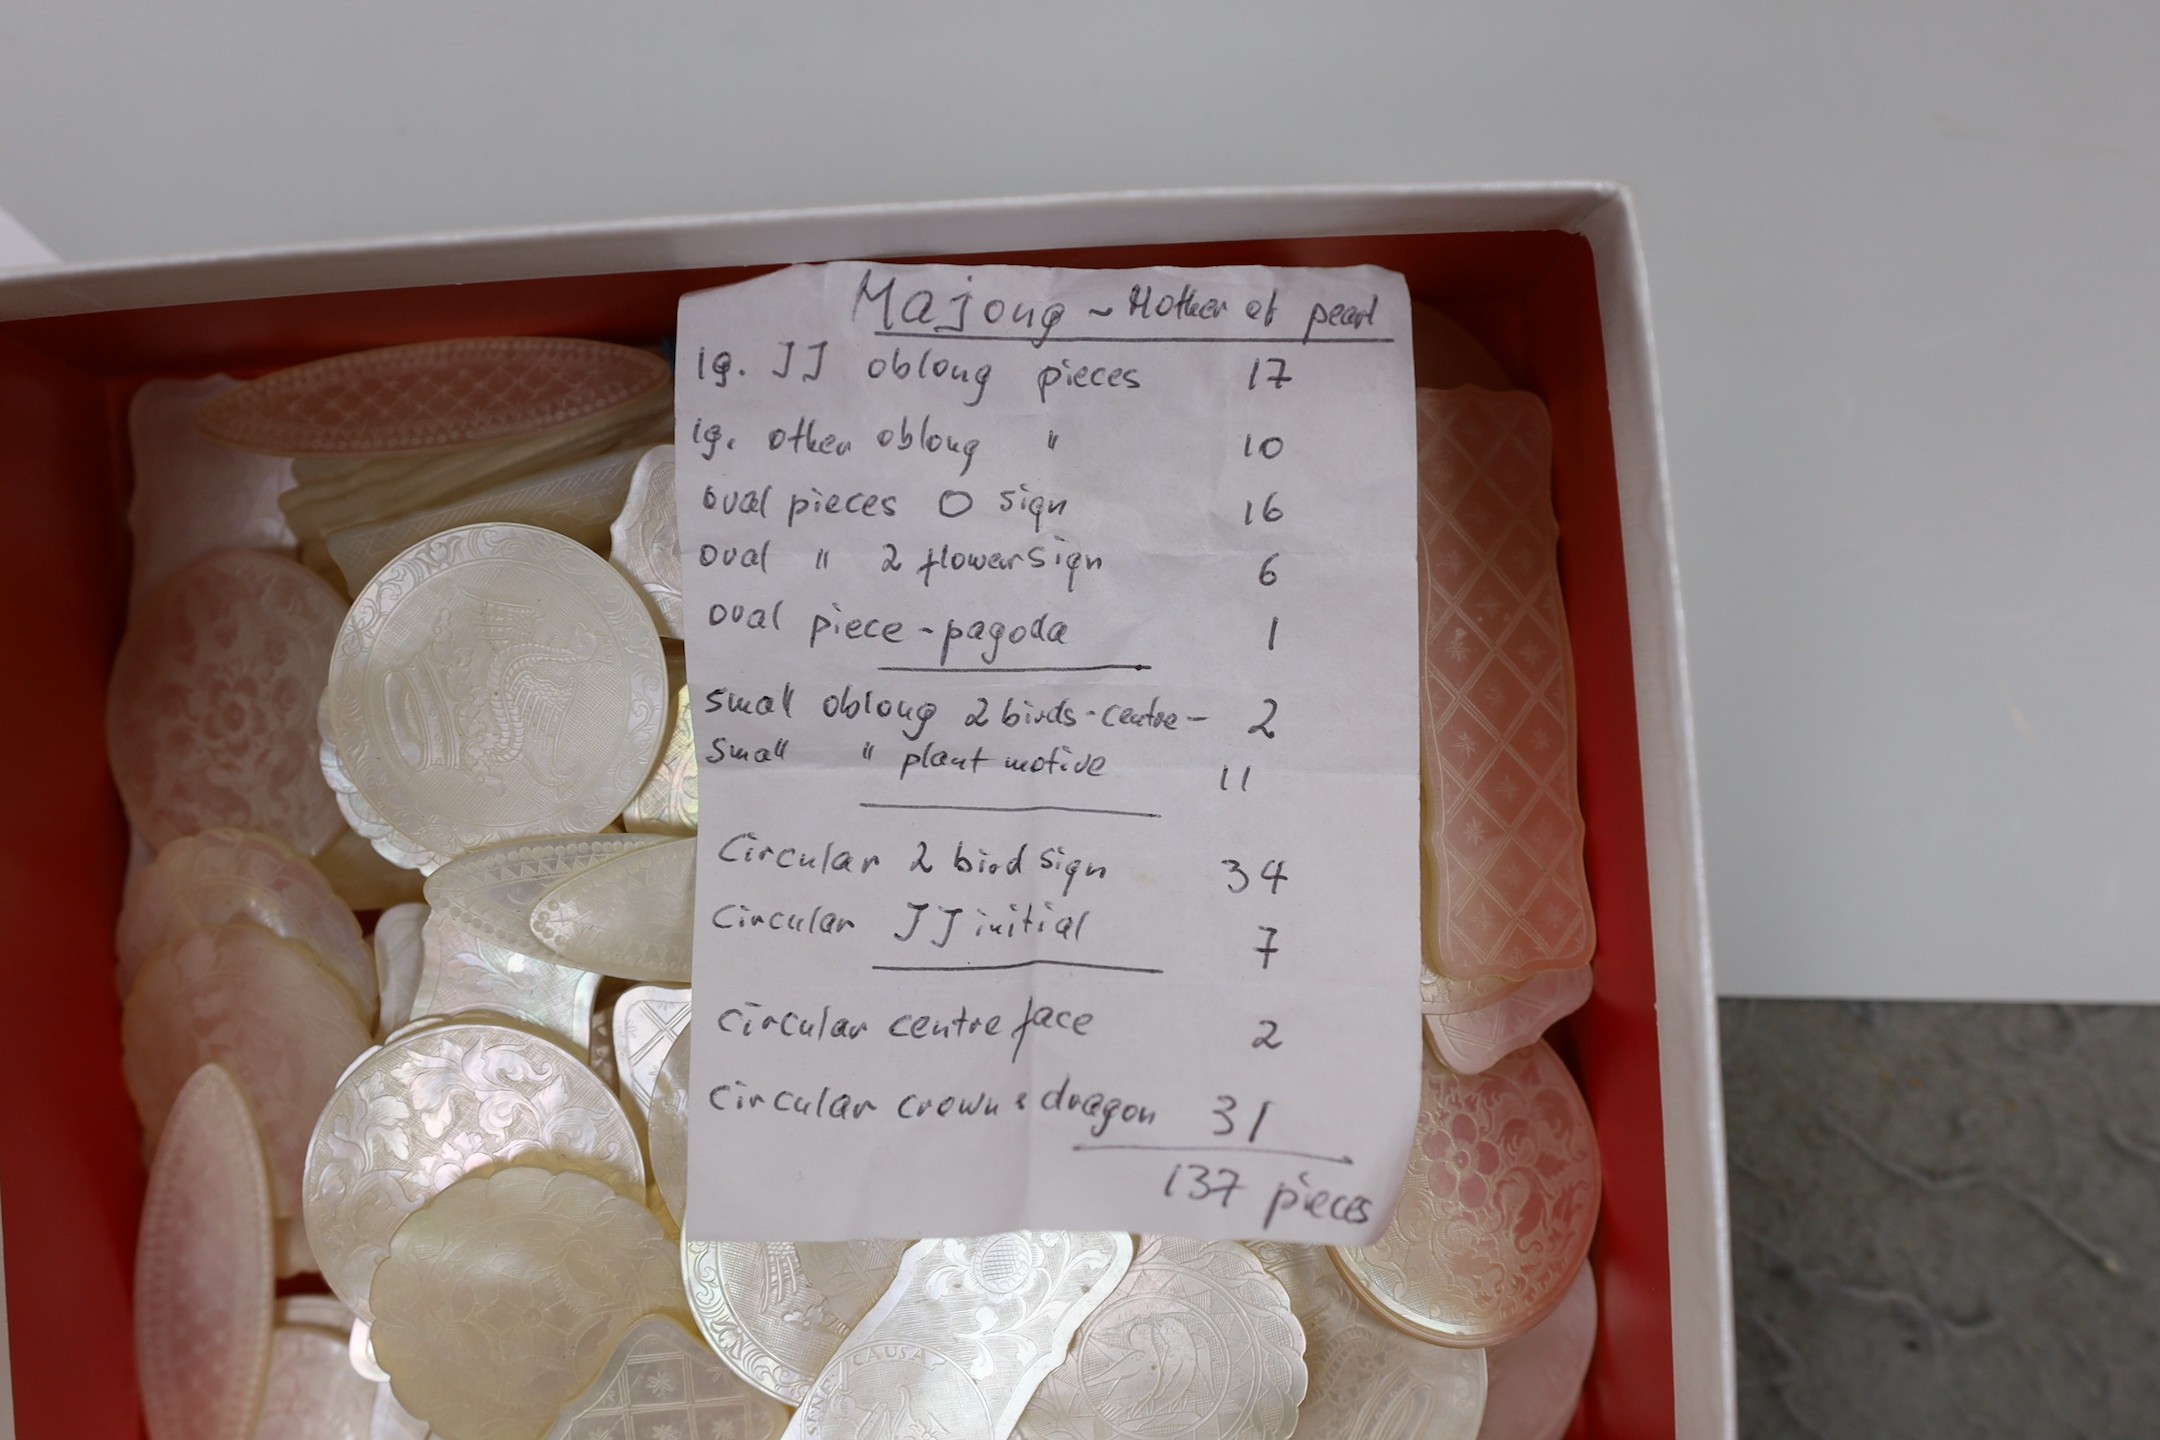 Majong ~ Mother of pearl
lg. JJ oblong pieces 17
lg. other oblong " 10
oval pieces O sign 16
oval " 2 flower sign 6
oval piece - pagoda 1
small oblong 2 birds - centre - 2
small " plant motive 11
Circular 2 bird sign 34
Circular JJ initial 7
circular centre face 2
circular crown & dragon 31
137 pieces
CAUSA